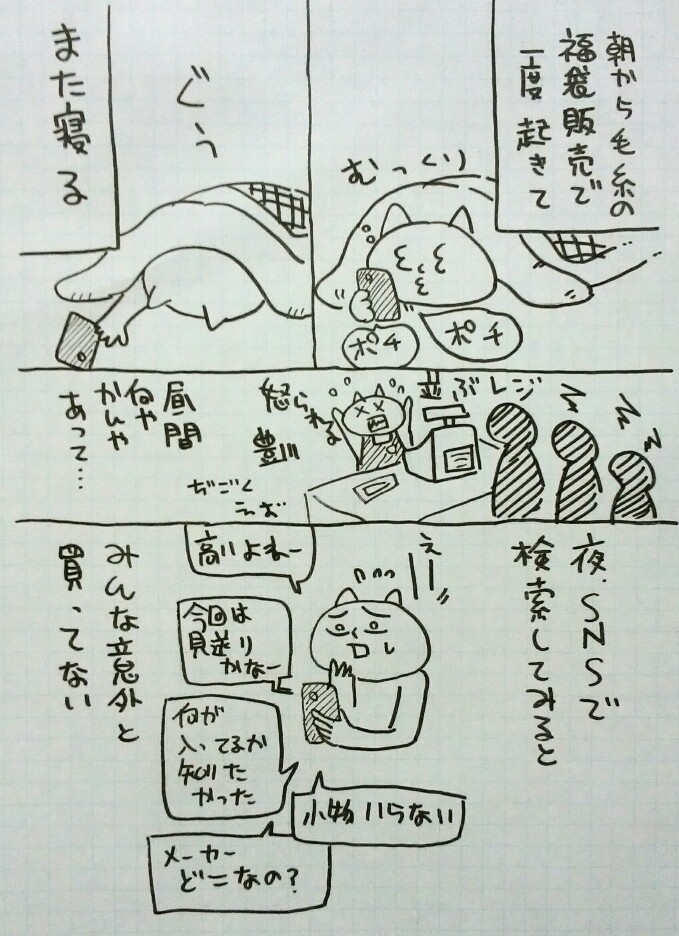 朝から毛糸の
福袋販売で
一度起きて
むっくり
ポチ
ポチ
ぐぅ
また寝る
並ぶレジ
怒られる
豊川
ぢごく
昼間
何や
かんや
あって…
夜、SNSで
検索してみると
えー
高いよねー
今回は
見送り
かなー
何が
入ってるか
知りた
かった
小物いらない
メーカー
どこなの?
みんな意外と
買ってない